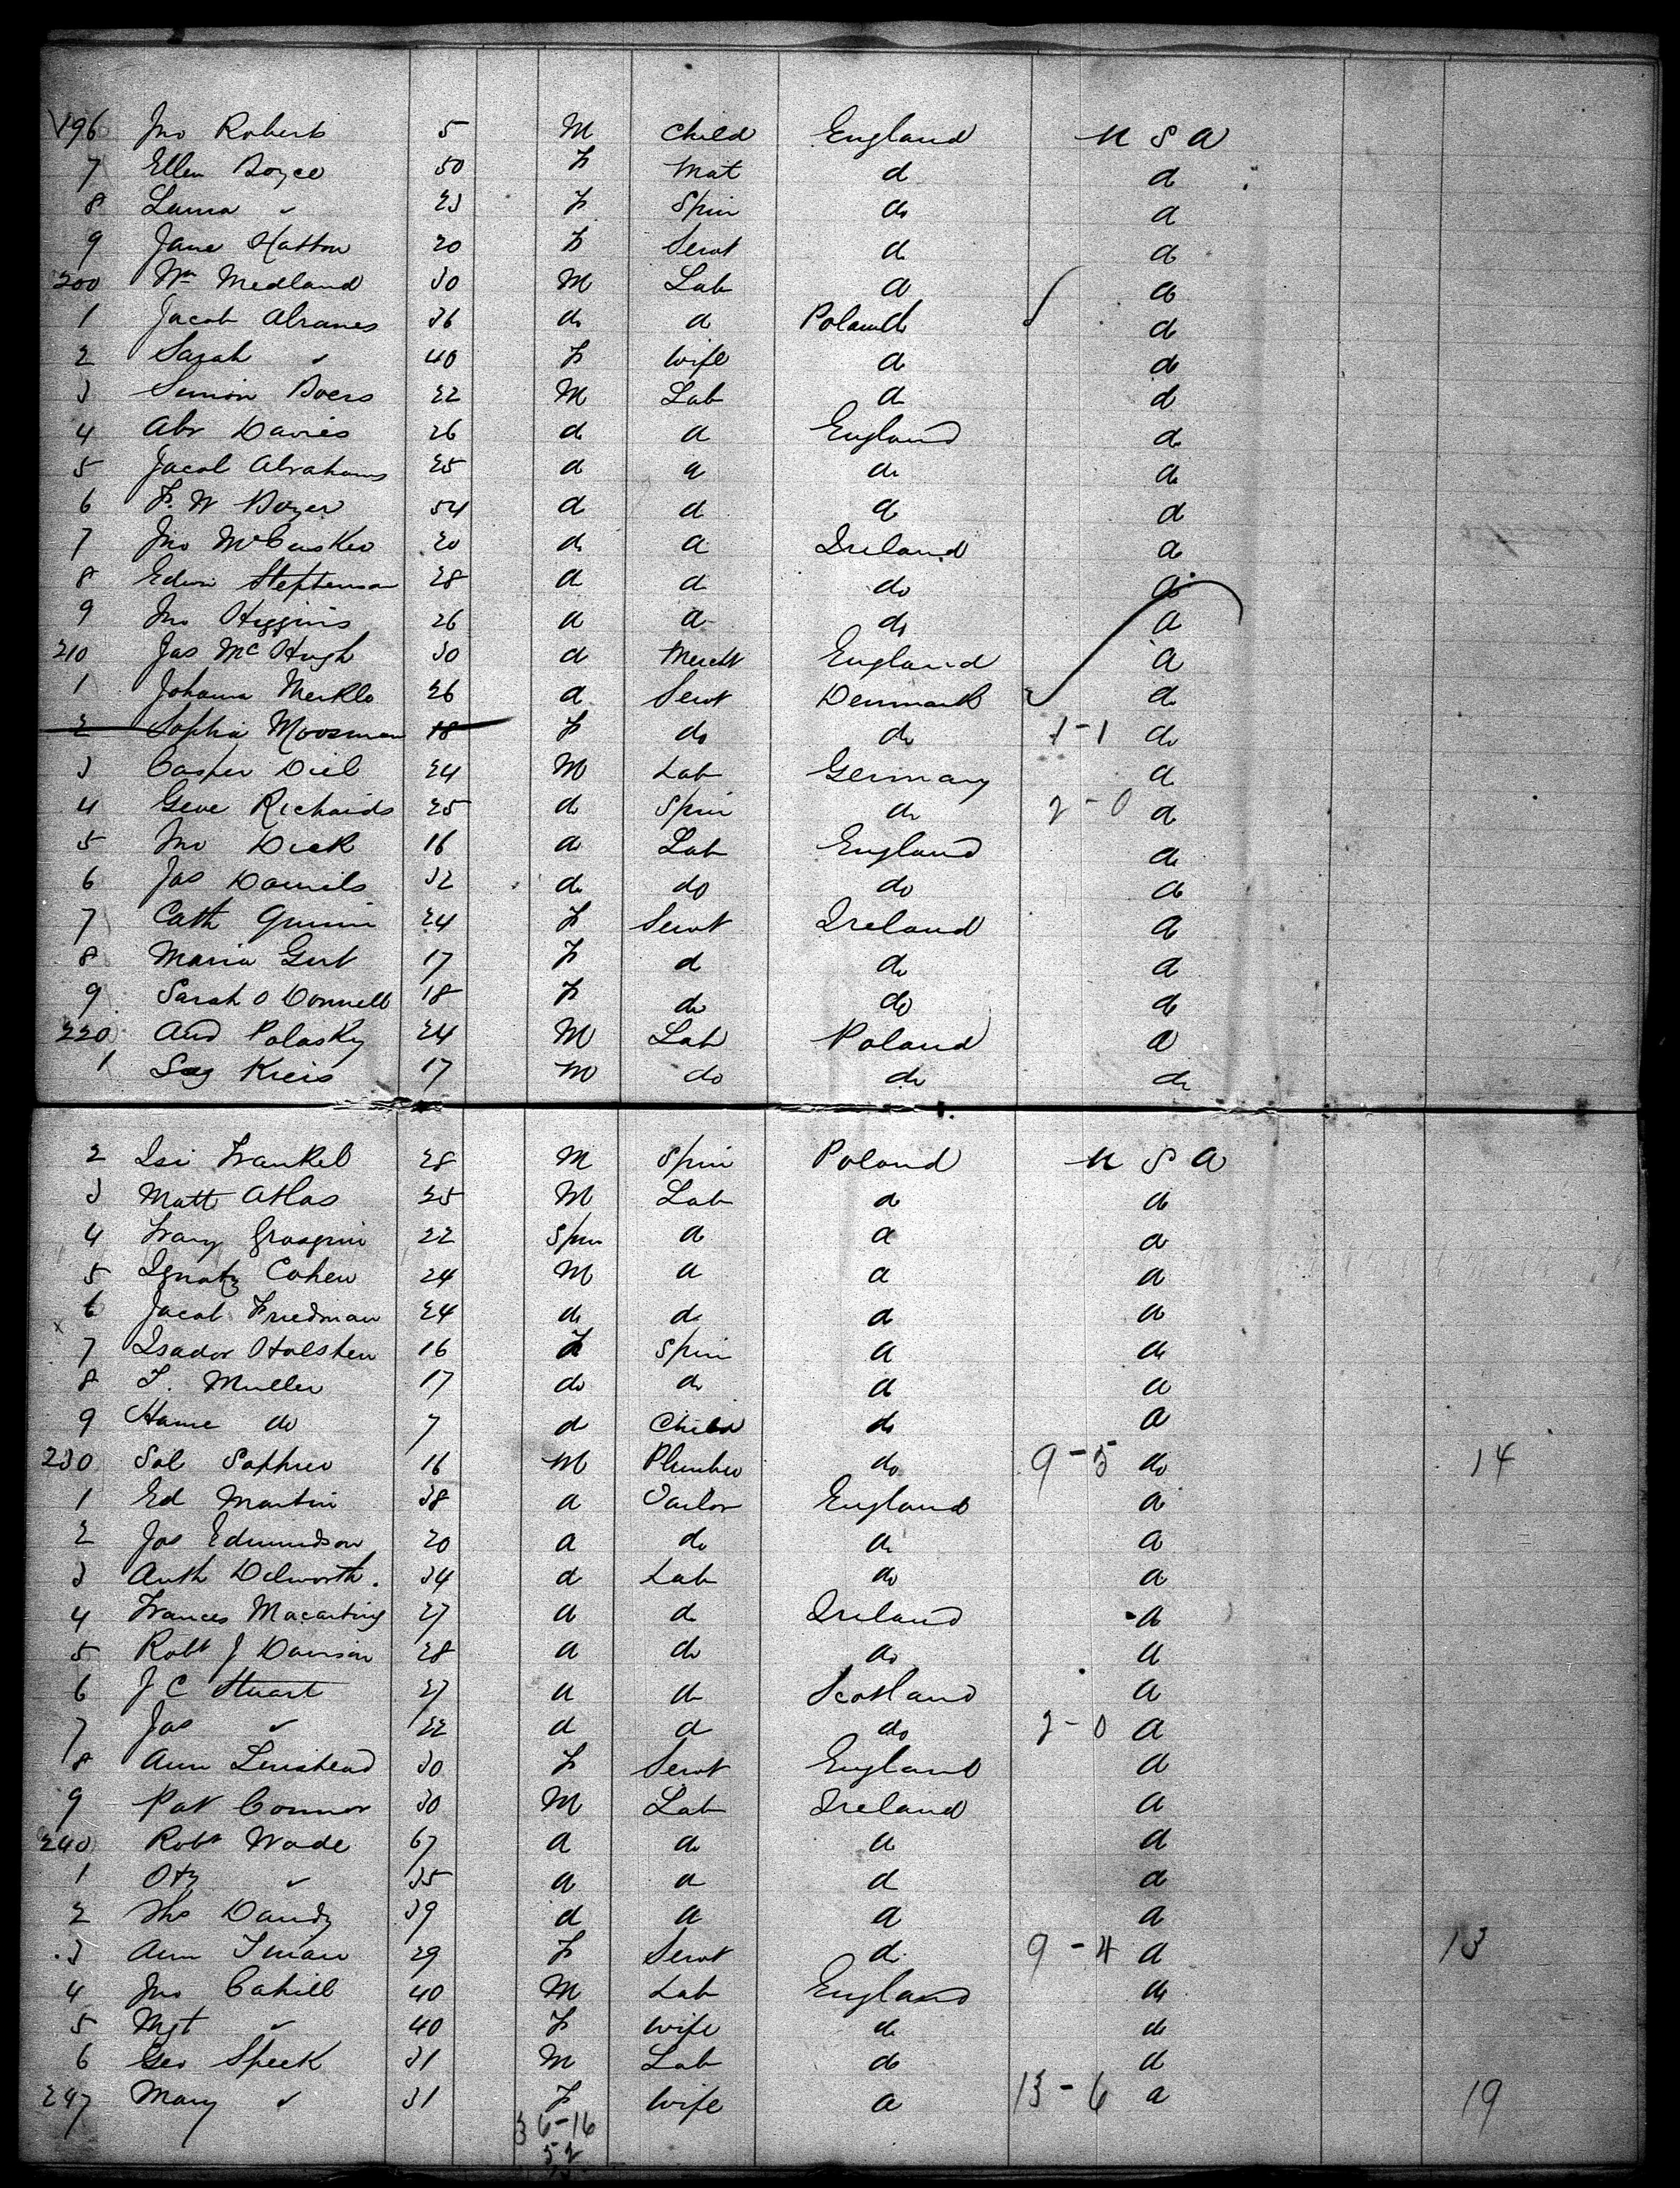 196 Jno Roberts 5 M Child England U S A
7 Ellen Boyce 50 F Mat d d
8 Laura " 23 F Spin do d
9 Jane Hatton 20 F Servt d d
200 Wm Medland 30 M Lab d do
1 Jacob Abranes 36 do d Poland d
2 Sarah " 40 F Wife d d
3 Simon Boers 22 M Lab d d
4 Abr Davies 26 d d England d
5 Jacob Abrahams 25 d d do d
6 F. W Boyer 54 d d d d
7 Jno McCusker 20 d d Ireland d
8 Edwin Stephenson 28 d d do do
9 Jno Higgins 26 d d do d
210 Jas McHugh 30 d Mercht England d
1 Johanna Merklo 26 d Servt Denmark d
2 Sophia Moosman 18 F do do 1-1 do
3 Casper Diel 24 M Lab Germany d
4 Geve Richards 25 d Spin do 2-0 d
5 Jno Dick 16 d Lab England d
6 Jas Daniels 32 d do do d
7 Cath Quinn 24 F Servt Ireland d
8 Maria Gert 17 F d do d
9 Sarah O Donnell 18 F do do d
220 And Polasky 24 M Lab Poland d
1 Kreis 17 M do do do
2 Isi Frankel 28 M Spin Poland U S A
3 Matt Atlas 25 M Lab d d
4 Franz 22 Spin d d d
5 Ignatz Cohen 24 M d d d
6 Jacob Friedman 24 do d d d
7 Isador Holshen 16 F Spin d d
8 T. Muller 17 do do d d
9 Hame do 7 d Child do d
230 Sol Saphreo 16 M Plumber do 9-5 do 14
1 Ed Martin 38 d Tailor England d
2 Jos Edmundson 20 d do d d
3 Auth Dilworth. 34 d Lab do d
4 Frances Macartiny 27 d d Ireland d
5 Robt J Davison 28 d do do d
6 J C Stuart 27 d d Scotland d
7 Jas " 22 d d do 2-0 d
8 Ann Linshead 30 F Servt England d
9 Pat Connor 30 M Lab Ireland d
240 Robt Wade 67 d d d d
1 " 35 d d d d
2 Tho Dandy 39 d d d d
3 Ann 29 F Servt d 9-4 d 13
4 Jno Cahill 40 M Lab England d
5 Mgt " 40 F Wife d d
6 Geo Speek 31 M Lab do d
247 Mary " 31 F Wife d 13-6 d 19
36-16
52